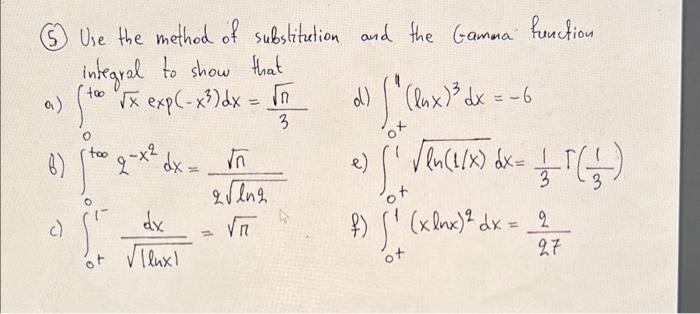 ⑤ Use the method of substitution and the Gamma function
integral to show that
a) ∫₀^{+∞} √x exp(-x³)dx = √π/3
b) ∫₀^{+∞} 2^{-x²} dx = √π/(2√ln2)
c) ∫_{0+}^{1-} dx/√|lnx| = √π
d) ∫_{0+}^{1} (lnx)³ dx = -6
e) ∫_{0+}^{1} √ln(1/x) dx = 1/3 Γ(1/3)
f) ∫_{0+}^{1} (xlnx)² dx = 2/27